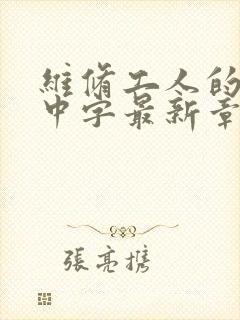 維脩工人的
中字最新章
張亮携